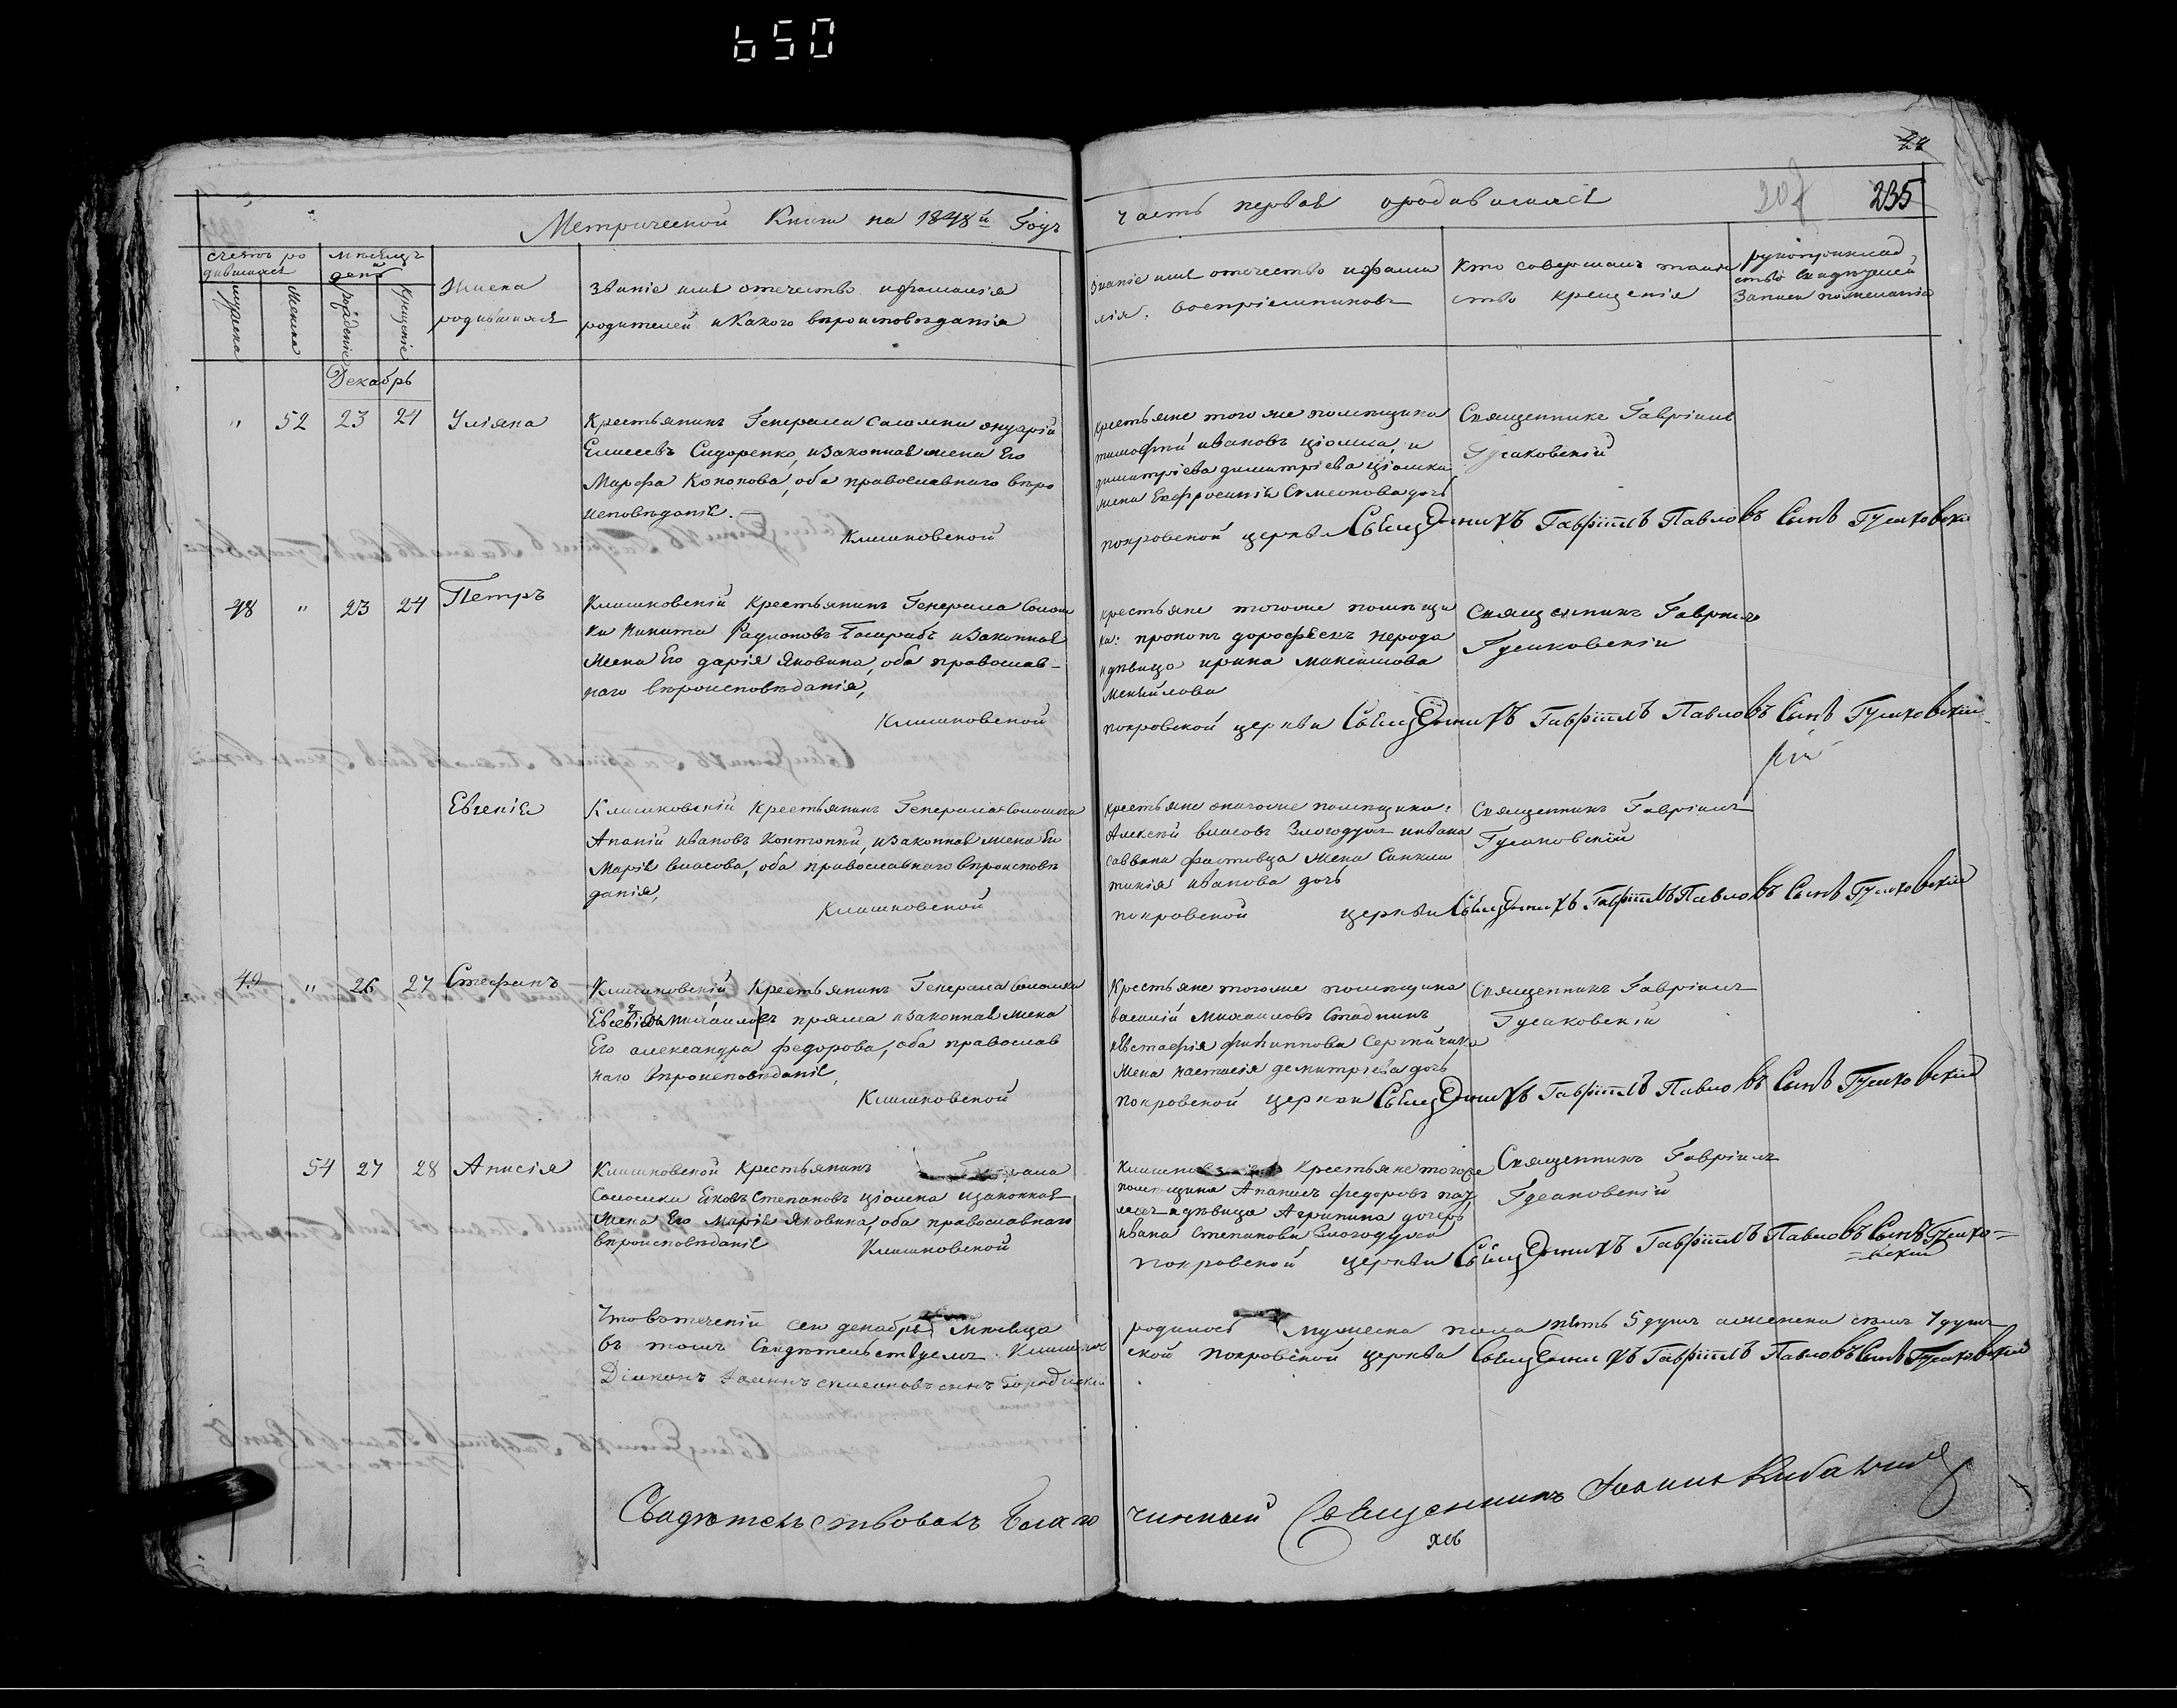 650
28
207 235
Метрической Книги на 1848й Годъ
часть первая ородившихся
счетъ ро
дившихся
мужеска
женска
мѣсяцъ
и
день
рождение
крещение
Имена
родившихся
званіе имя отечество ифамилія
родителей иКакого вѣроисповѣданія
званіе имя отечество ифами
лія. воспріемниковъ
Кто совершалъ таин
ство крещенія
рукоприклад
ство свидѣтелей
Записи пожеланію
Декабрь
" 52 23 24 Уліяна
Крестьянинъ Генерала Саломки
Елисеевъ Сидоренко, изаконная жена Его
Марфа Кононова, оба православнаго вѣро
исповѣданія.
Климковской
крестьяне того же помещика
тимофей ивановъ ціомка, и
димитріева димитріева ціомки
жена Евфросинія Симеонова дочь
покровской церкви Священникъ Гавріилъ Павловъ Сынъ Гусаковскій
Священникъ Гавріилъ
Гусаковскій
48 " 23 24 Петръ
Климковскій крестьянинъ Генерала Салом
ки Никита Радионовъ изаконная
жена Его дарія Яковина, оба православ-
наго вѣроисповѣданія,
Климковской
крестьяне тогоже помещи
ка: прокопъ дорофеевъ
идѣвица ирина максимова
покровской церкви Священникъ Гавріилъ Павловъ Сынъ Гусаковскій
Священникъ Гавріилъ
Гусаковскій
Евгенія
Климковскій крестьянинъ Генерала Саломки
Ананій ивановъ изаконная жена Его
Марія власова, оба православнаго вѣроисповѣ
данія,
Климковской
крестьяне тогоже помещика:
Алексѣй власовъ Злогодухъ ивана
саввина фастовца жена Синкли
тикія иванова дочь
покровской церкви Священникъ Гавріилъ Павловъ Сынъ Гусаковскій
Священникъ Гавріилъ
Гусаковскій
49 " 26 27 Стефанъ
Климковскій крестьянинъ Генерала Саломки
Михаиловъ изаконная жена
Его александра федорова, оба православ
наго вѣроисповѣданія,
Климковской
Крестьяне тогоже помещика
василій Михаиловъ Стадникъ
иЕвстафія филиппова
жена настасія демитріева дочь
покровской церкви Священникъ Гавріилъ Павловъ Сынъ Гусаковскій
Священникъ Гавріилъ
Гусаковскій
54 27 28 Анисія
Климковской Крестьянинъ Генерала
Саломки Яковъ Степановъ ціомка изаконная
жена Его Марія Яковина, оба православнаго
вѣроисповѣданія Климковской
Крестьяне тогоже
помещика Ананій федоровъ
идѣвица Агрипина дочерь
ивана Степанова Злогодуха
покровской церкви Священникъ Гавріилъ Павловъ Сынъ Гусако=
=вскій
Священникъ Гавріилъ
Гусаковскій
Чтовотеченіи сего декабря Мѣсяца
родилось мужеска пола пять 5 душъ аженска семь 7 душъ
въ томъ Свидетельствуемъ. Климков
ской покровской церкви Священникъ Гавріилъ Павловъ Сынъ Гусаковскій
Діаконъ симеоновъ сынъ
Свидѣтельствовалъ Благо
чинный Священникъ Іоаннъ